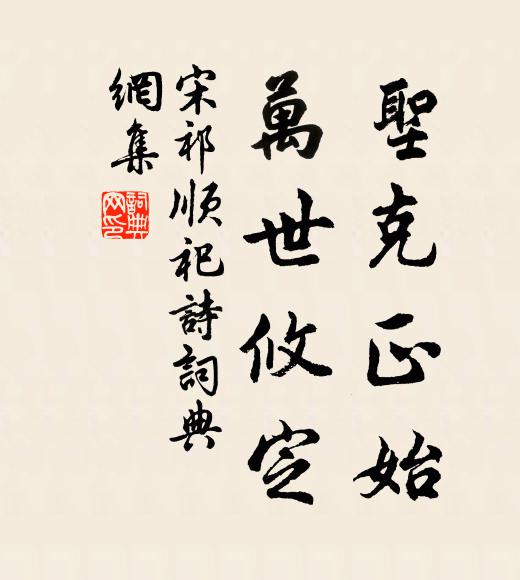 聖克正始
萬世攸定
宋祁順祀詩詞典
網集
詞典
网印